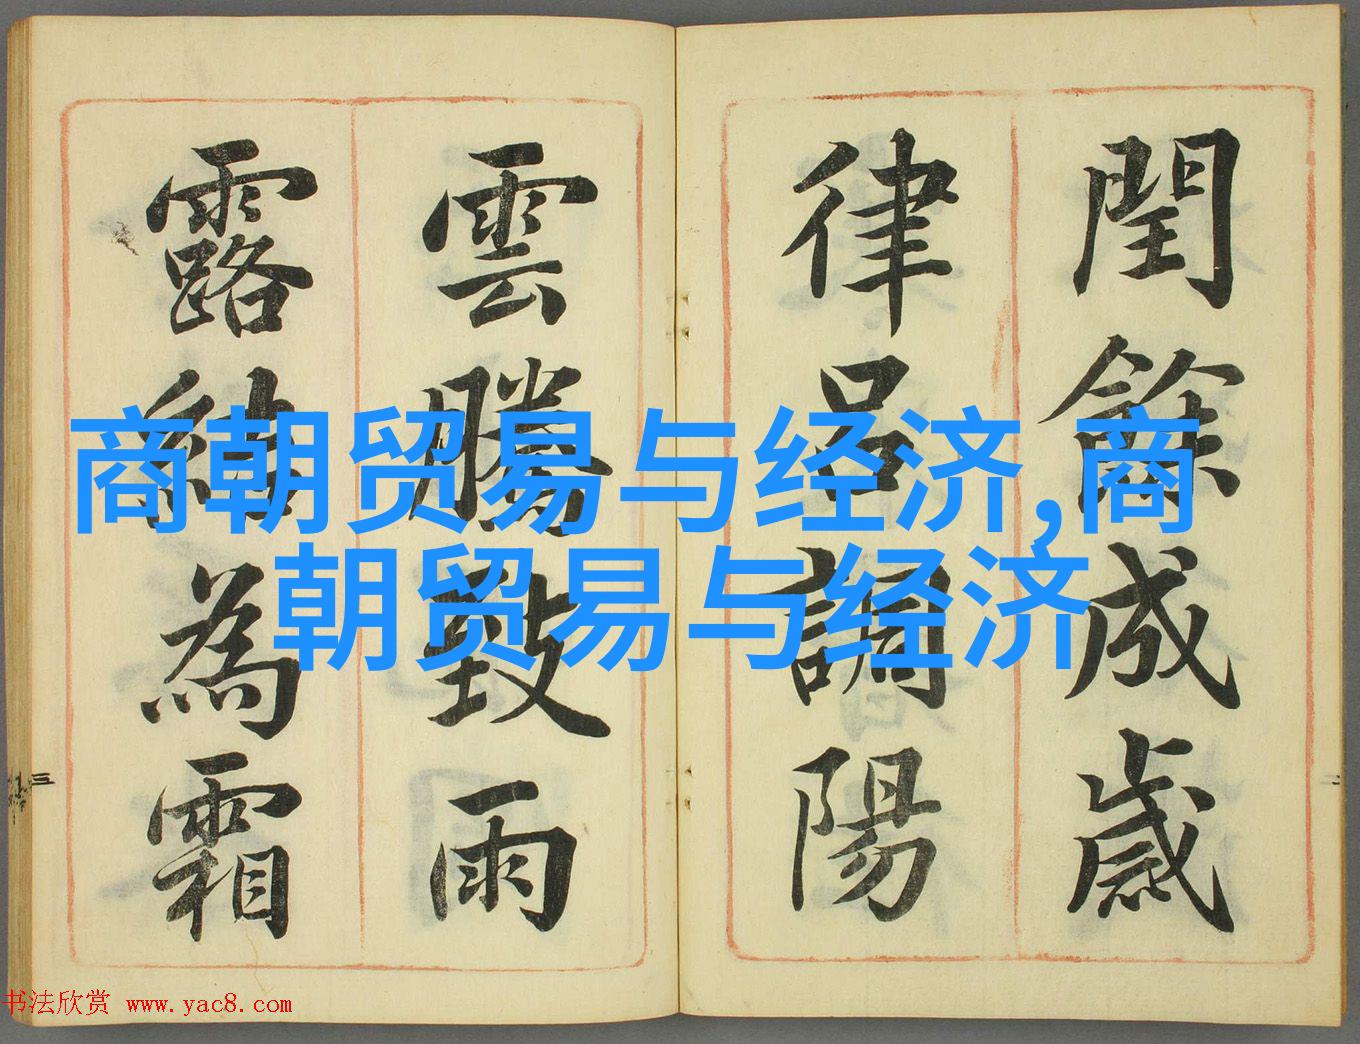 閏餘成歲
律呂調陽
雲騰致雨
露結為霜
商朝贸易与经济,商
朝贸易与经济
三
二
书法欣赏 www.yac8.com